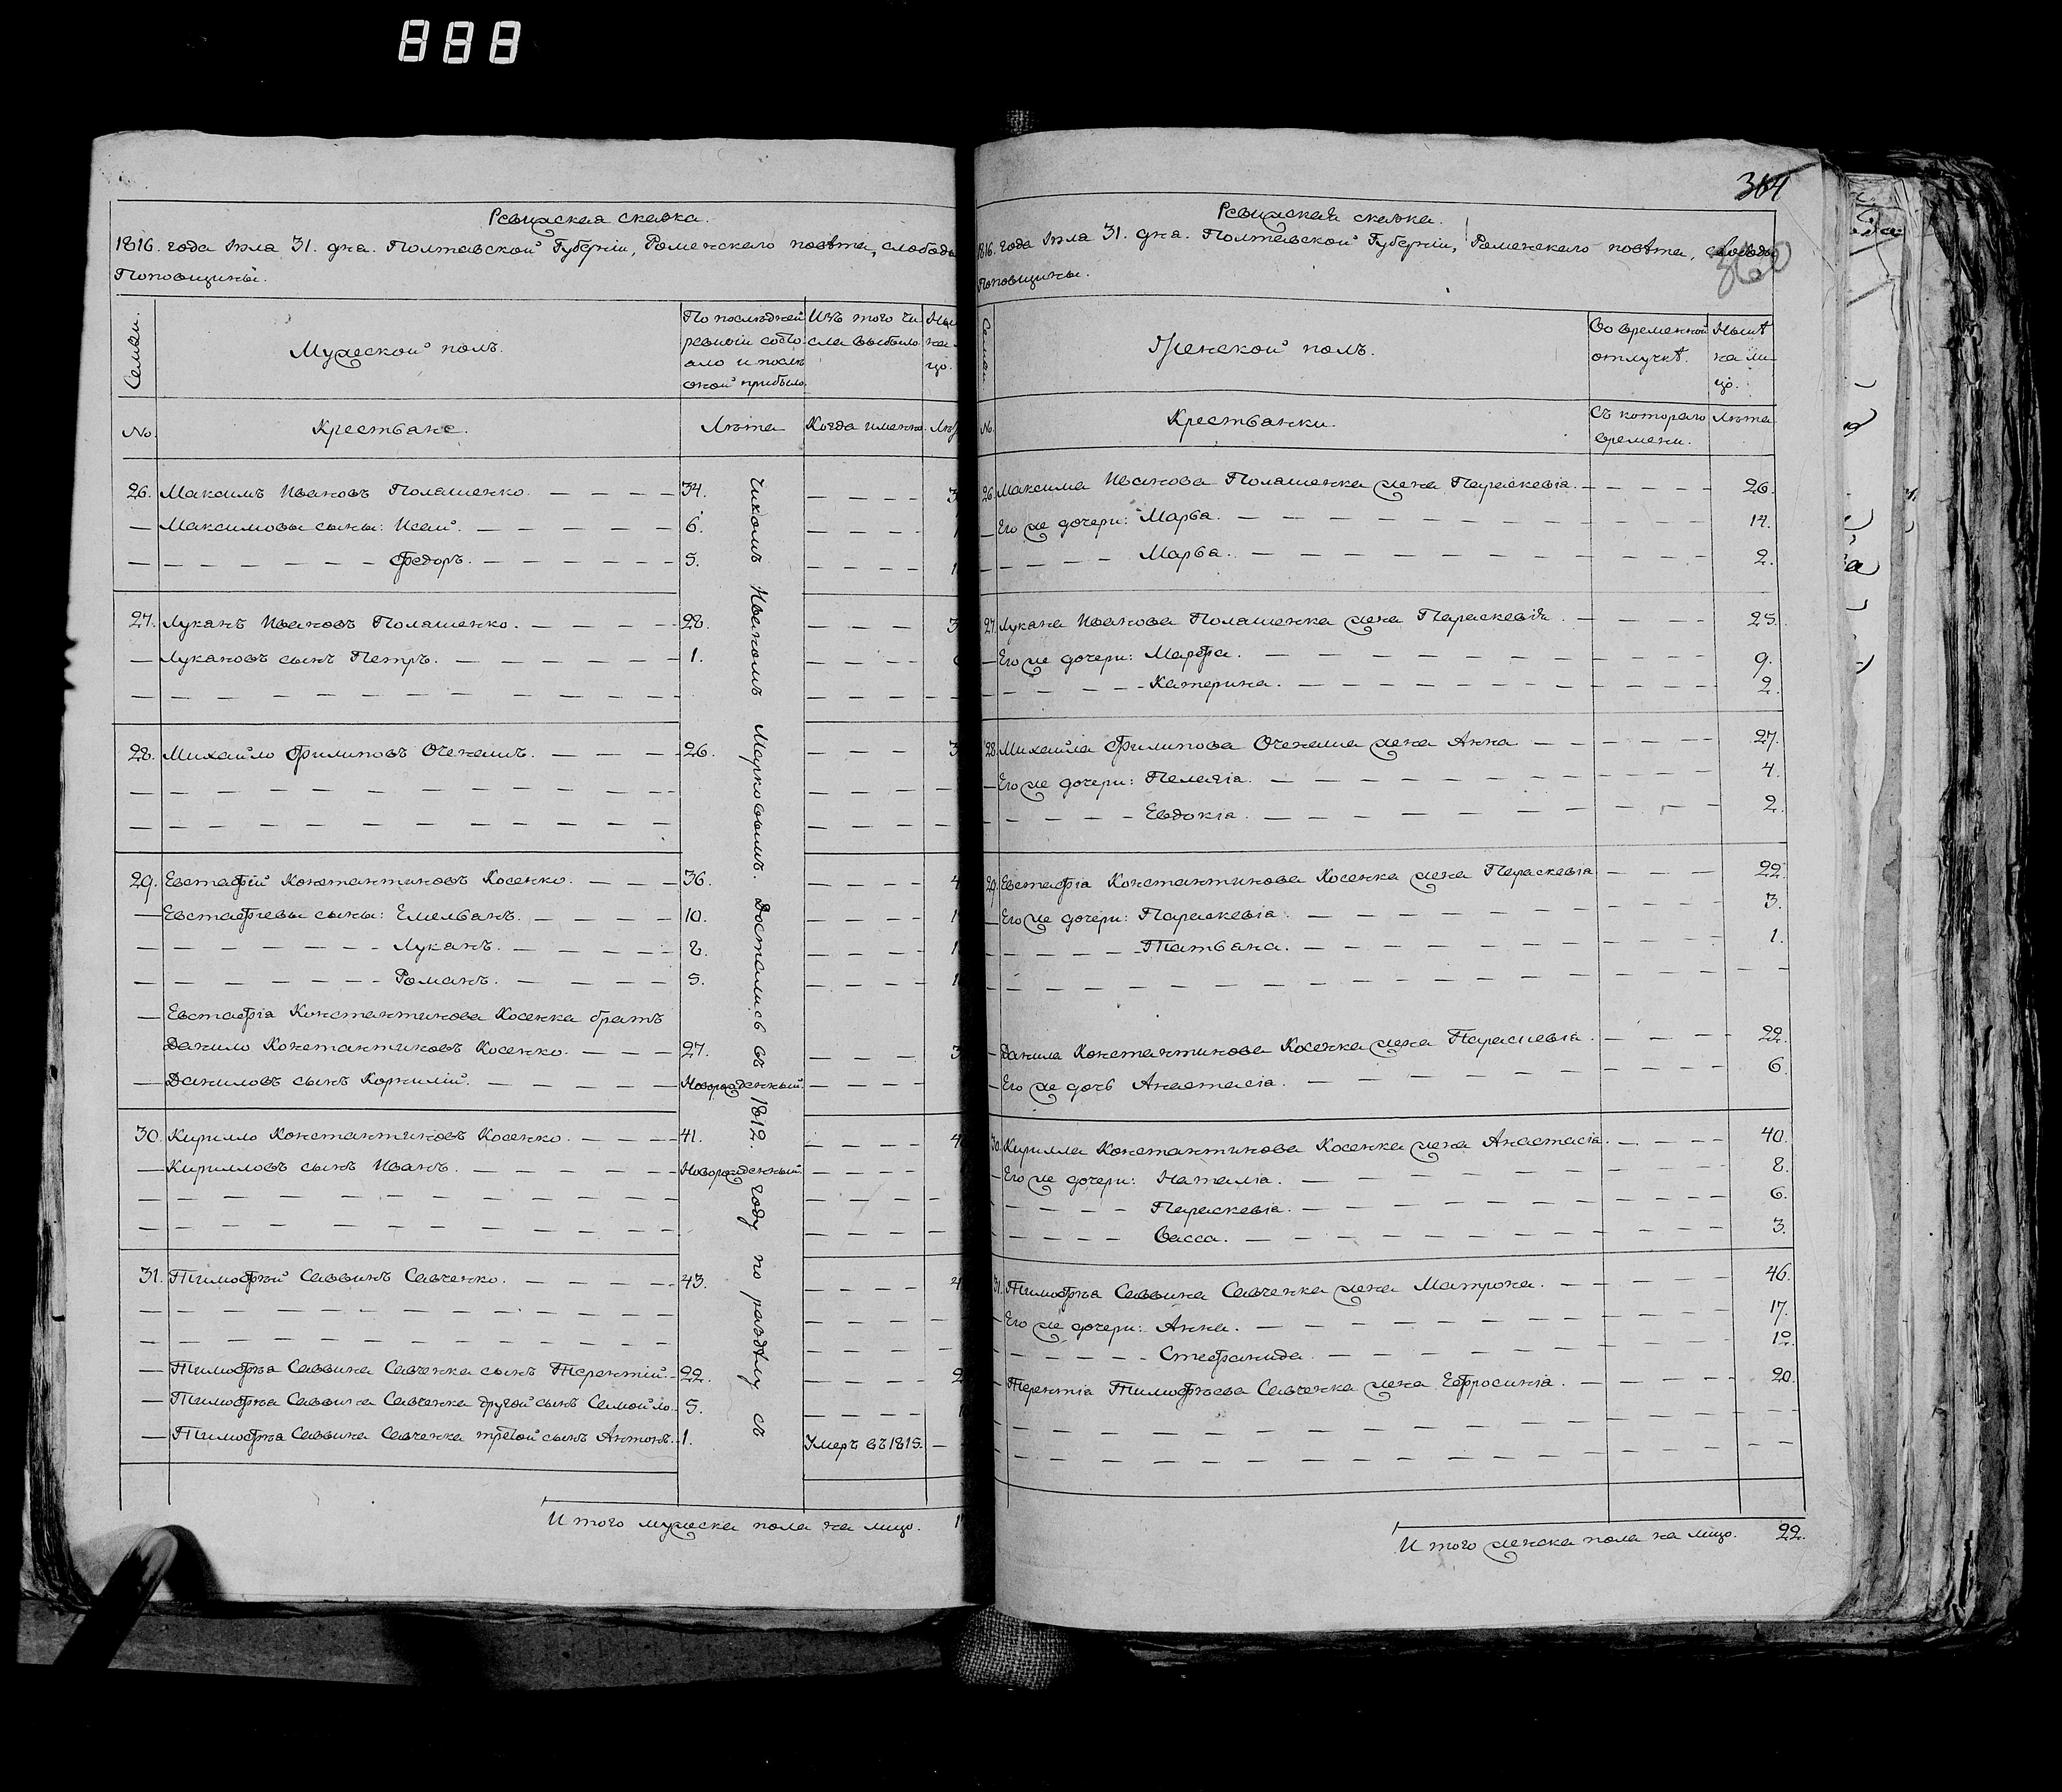 888
Ревижская сказка.
1816. года Іюла 31. дна. Полтавской Губерніи, Роменскаго повѣта, слободы
Поповщины.
Семьи.
Мужеской полъ.
По послѣдней
ревизіи состо-
ало и послѣ
оной прибыло.
Изъ того чи-
сла выбыло.
No.
Крестьане.
Лѣта
Когда именно.
26. Максимъ Ивановъ Полашенко. 34.
Максимовы сыны: Исай. 6.
Федоръ. 5.
27. Луканъ Ивановъ Полашенко. 28.
Лукановъ сынъ Петръ. 1.
28. Михайло Филиповъ Оченашъ. 26.
29. Евстафій Константиновъ Косенко. 36.
Евстафіевы сыны: Емельанъ. 10.
Луканъ. 8.
Романъ. 5.
Евстафіа Константинова Косенка братъ
Данило Константиновъ Косенко. 27.
Даниловъ сынъ Корнилій. Новорожденный.
30. Кирило Константиновъ Косенко. 41.
Кирилловъ сынъ Иванъ. Новорожденный.
31. Тимофѣй Саввинъ Савченко. 43.
Тимофѣа Саввина Савченка сынъ Терентій. 22.
Тимофѣа Саввина Савченка другой сынъ Самойло. 5.
Тимофѣа Саввина Савченка третой сынъ Антонъ. 1. Умеръ въ 1815.
чикомъ Иваномъ Марковымъ. Достались въ 1812. году по раздѣлу съ
И того мужеска пола на лицо.
384
360
Ревижская сказка.
1816. года Іюла 31. дна. Полтавской Губерніи, Роменскаго повѣта, слободы
Поповщины.
Женской полъ.
Во временной
отлучкѣ.
Нынѣ
на ли-
цо.
No.
Крестьанки.
Съ котораго
времени.
Лѣта
26. Максима Иванова Полашенка жена Параскевіа. 26.
Его же дочери: Марѳа. 14.
Марѳа. 2.
27. Лукана Иванова Полашенка жена Параскевіа. 25.
Его же дочери: Марфа. 9.
Катерина. 2.
28. Михайла Филипова Оченаша жена Анна 27.
Его же дочери: Пелагіа. 4.
Евдокіа. 2.
29. Евстафіа Константинова Косенка жена Параскевіа 22.
Его же дочери: Параскевіа. 3.
Татьана. 1.
Данила Константинова Косенка жена Параскевіа. 22.
Его же дочь Анастасіа. 6.
30. Кирилла Константинова Косенка жена Анастасіа. 40.
Его же дочери: Наталіа. 8.
Параскевіа. 6.
Васса. 3.
31. Тимофѣа Саввина Савченка жена Матрона. 46.
Его же дочери: Анна. 17.
Стефанида. 12.
Терентіа Тимофѣева Савченка жена Ефросиніа. 20.
И того женска пола на лицо. 22.